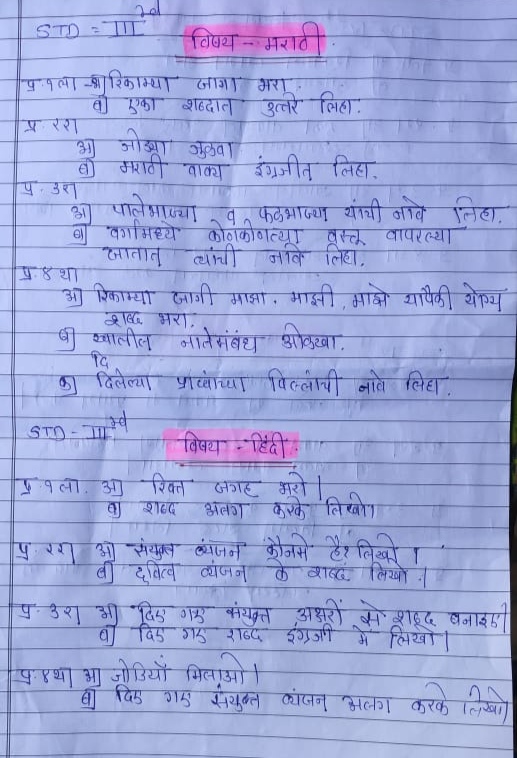 STD = III
विषय - मराठी
प्र.१ला अ) रिकाम्या जागा भरा.
ब) एका शब्दात उत्तरे लिहा.
प्र. २रा
अ) जोड्या जुळवा
ब) मराठी वाक्य इंग्रजीत लिहा.
प्र. ३रा
अ) पालेभाज्या व फळभाज्या यांची नावे लिहा.
ब) वर्गामध्ये कोणकोणत्या वस्तू वापरल्या
जातात त्यांची नावे लिहा.
प्र.४था
अ) रिकाम्या जागी माझा, माझी, माझे यापैकी योग्य
शब्द भरा.
ब) खालील नातेसंबंध ओळखा.
दि
क) दिलेल्या प्राण्यांच्या पिल्लांची नावे लिहा.
STD - III
विषय - हिंदी
प्र.१ला. अ) रिक्त जगह भरो।
ब) शब्द अलग करके लिखो।
प्र. २रा अ) संयुक्त व्यंजन कौनसे है? लिखो।
ब) द्वित्व व्यंजन के शब्द लिखो।
प्र. ३रा अ) दिए गए संयुक्त अक्षरों से शब्द बनाइए।
ब) दिए गए शब्द इंग्रजी मे लिखो।
प्र.४था अ) जोडियाँ मिलाओ।
ब) दिए गए संयुक्त व्यंजन अलग करके लिखो